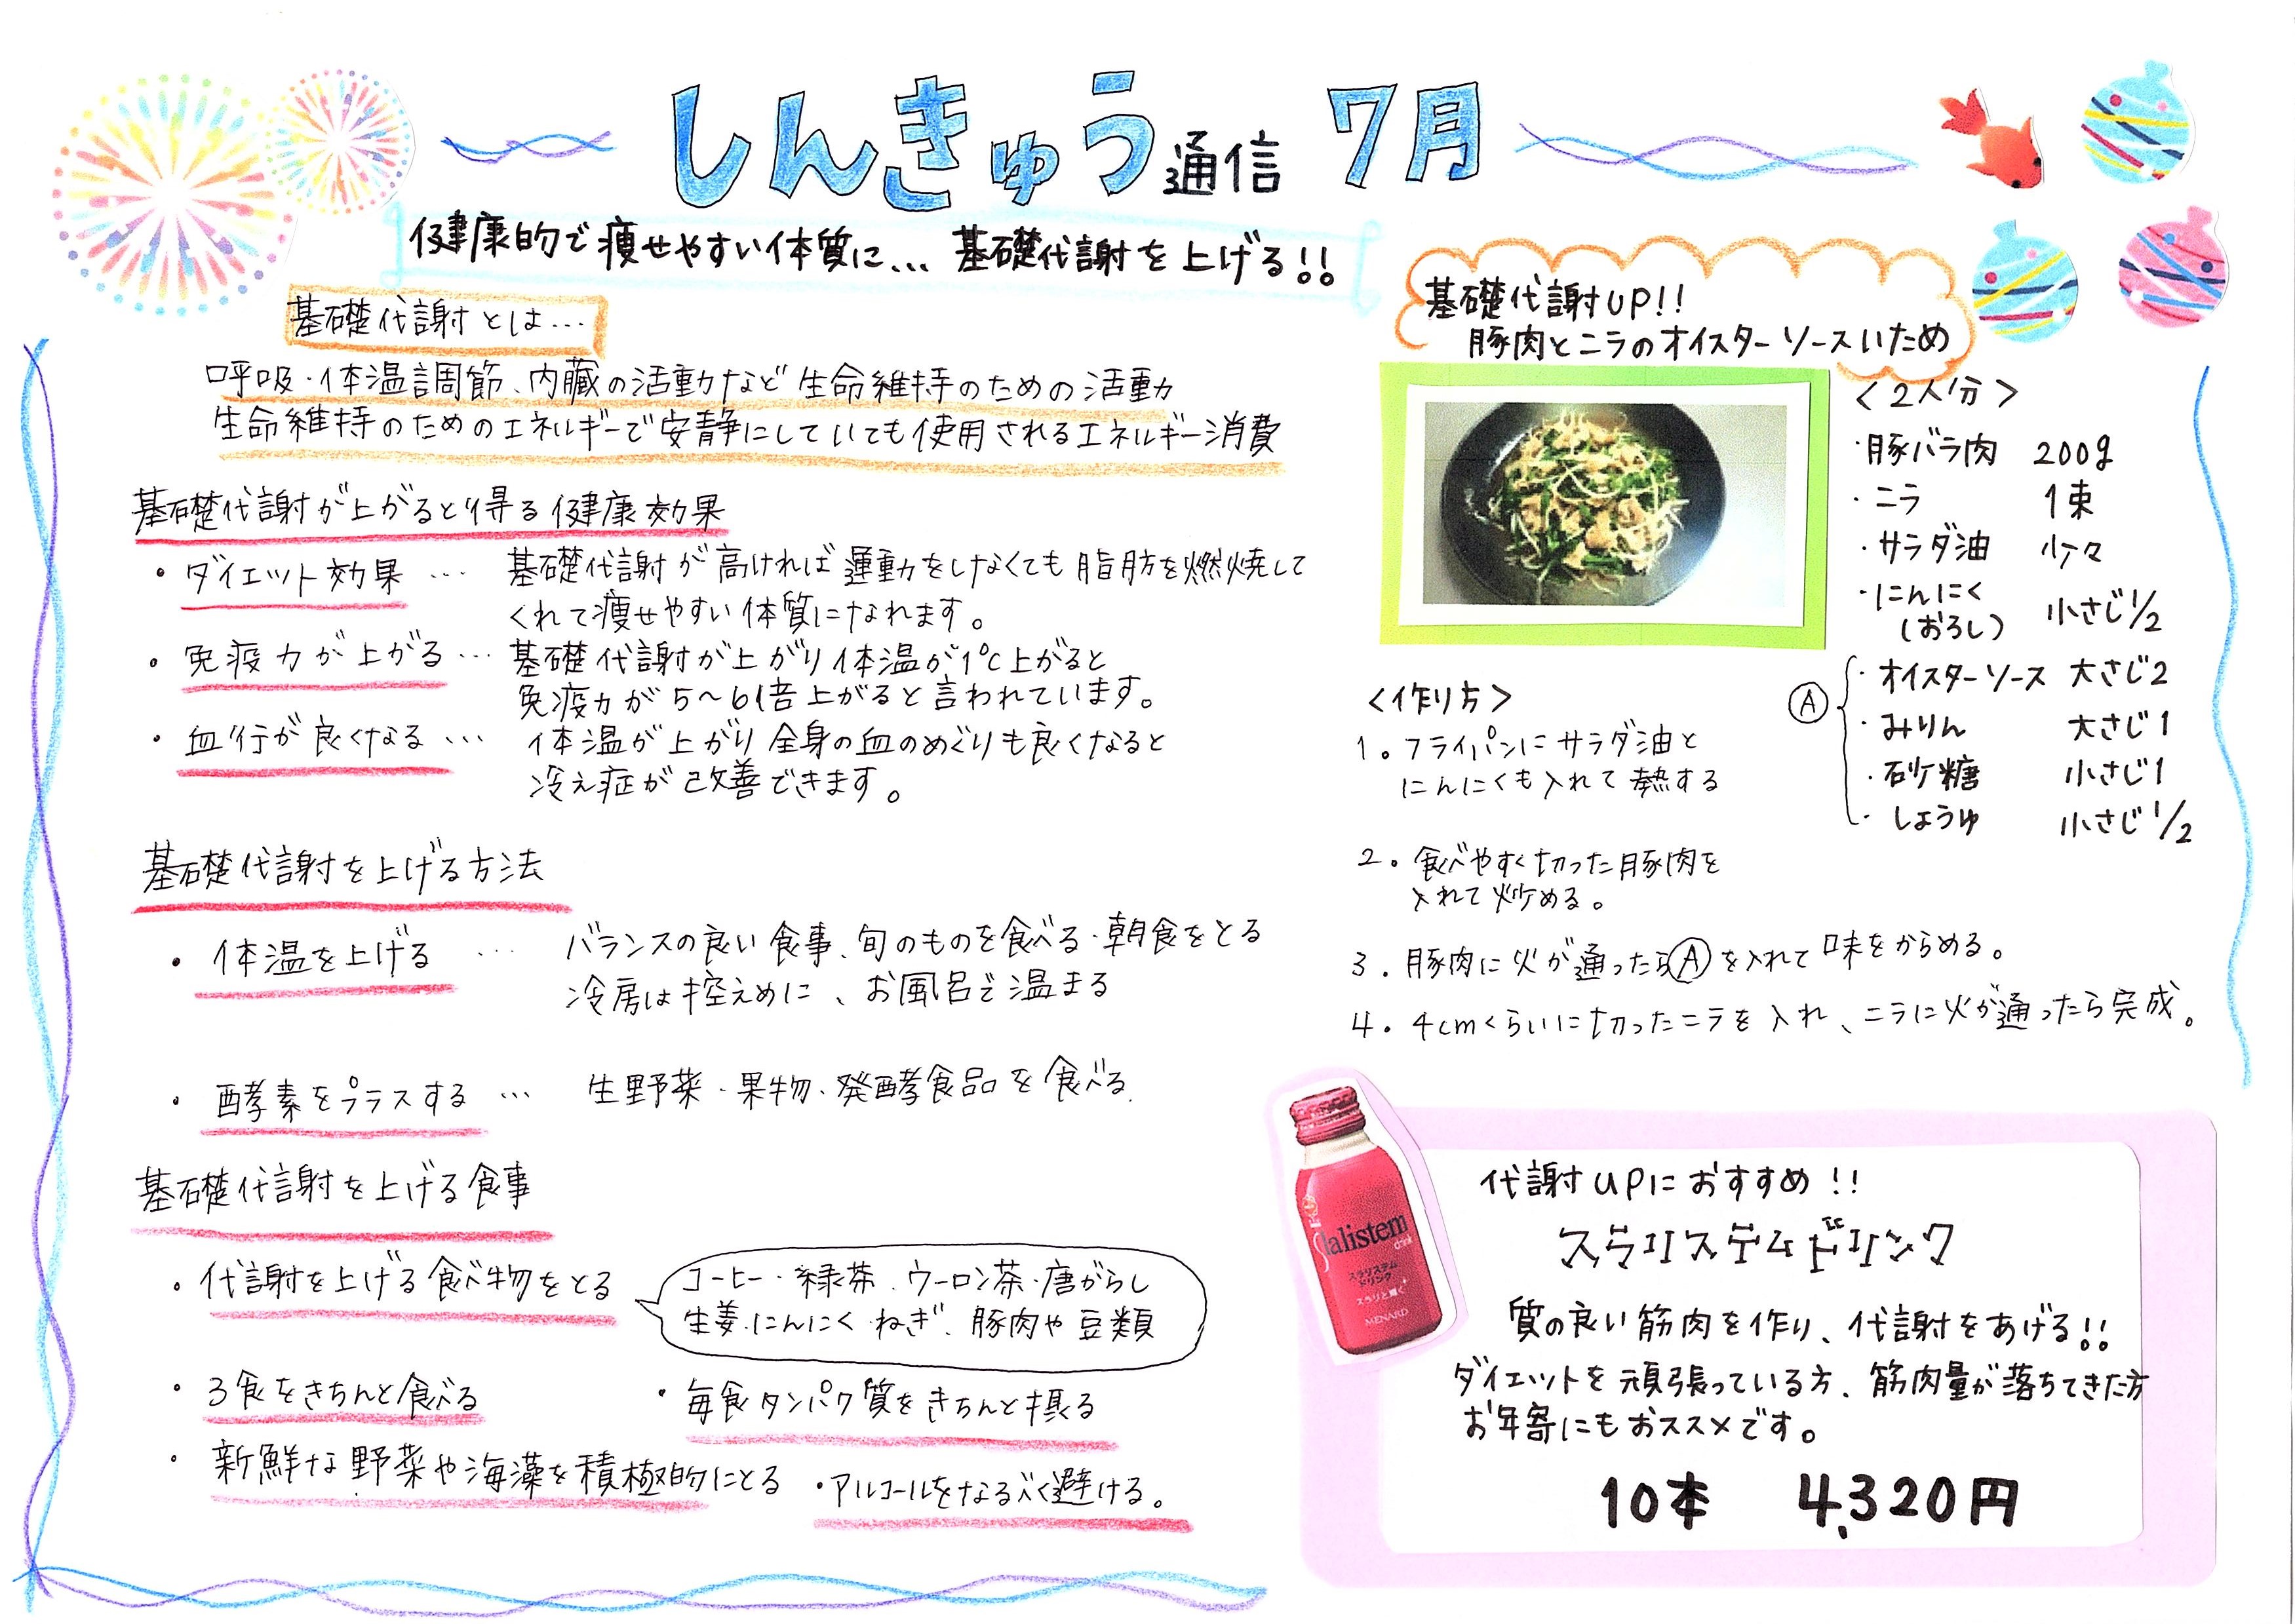 しんきゅう通信 7月
健康的で痩せやすい体質に… 基礎代謝を上げる!!
基礎代謝とは…
呼吸・体温調節、内臓の活動など生命維持のための活動
生命維持のためのエネルギーで安静にしていても使用されるエネルギー消費
基礎代謝が上がると得る健康効果
・ダイエット効果 … 基礎代謝が高ければ運動をしなくても脂肪を燃焼して
くれて痩せやすい体質になれます。
・免疫力が上がる … 基礎代謝が上がり体温が1℃上がると
免疫力が5〜6倍上がると言われています。
・血行が良くなる … 体温が上がり全身の血のめぐりも良くなると
冷え症が改善できます。
基礎代謝を上げる方法
・体温を上げる … バランスの良い食事、旬のものを食べる・朝食をとる
冷房は控えめに、お風呂で温まる
・酵素をプラスする … 生野菜・果物、発酵食品を食べる.
基礎代謝を上げる食事
・代謝を上げる食べ物をとる
コーヒー・緑茶、ウーロン茶・唐がらし
生姜、にんにく・ねぎ、豚肉や豆類
・3食をきちんと食べる ・毎食タンパク質をきちんと摂る
・新鮮な野菜や海藻を積極的にとる ・アルコールをなるべく避ける。
基礎代謝UP!!
豚肉とニラのオイスターソースいため
<2人分>
・豚バラ肉 200g
・ニラ 1束
・サラダ油 少々
・にんにく
(おろし) 小さじ1/2
Ⓐ ・オイスターソース 大さじ2
・みりん 大さじ1
・砂糖 小さじ1
・しょうゆ 小さじ1/2
<作り方>
1. フライパンにサラダ油と
にんにくも入れて熱する
2. 食べやすく切った豚肉を
入れて炒める。
3. 豚肉に火が通ったらⒶを入れて味をからめる。
4. 4cmくらいに切ったニラを入れ、ニラに火が通ったら完成。
Slalistem
drink
スラリステム
ドリンク
スラリと輝く
MENARD
代謝UPにおすすめ!!
スラリステムドリンク
質の良い筋肉を作り、代謝をあげる!!
ダイエットを頑張っている方、筋肉量が落ちてきた方
お年寄にもおススメです。
10本 4,320円